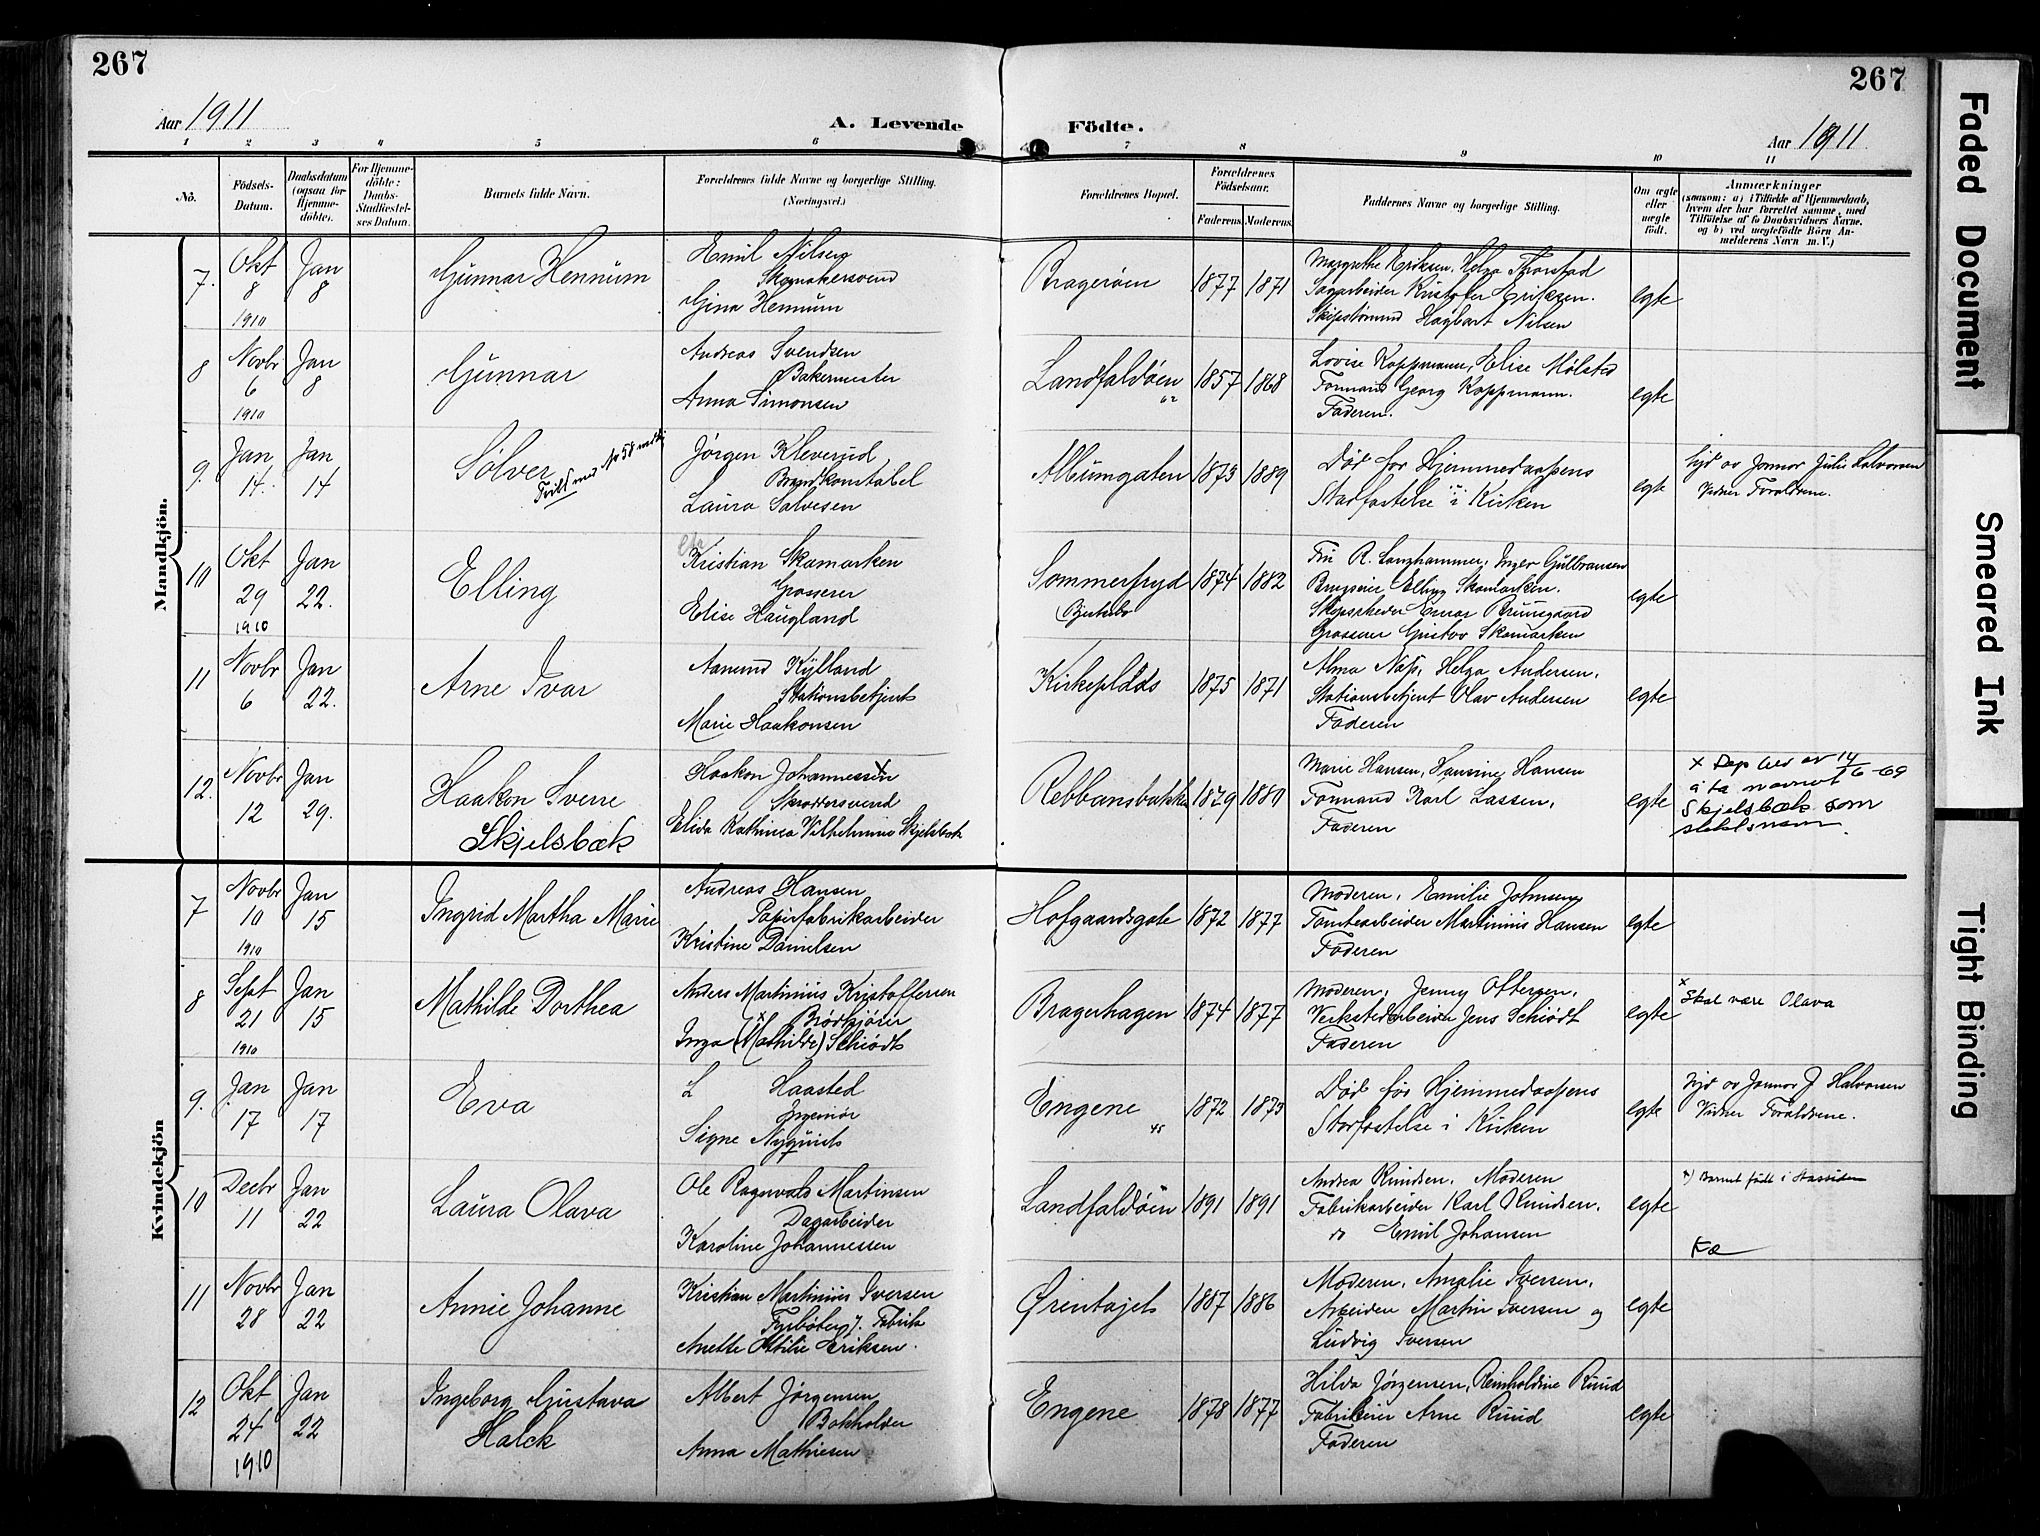 267
267
Aar 1911
A. Levende Födte.
Aar 1911
1 2 3 4 5 6 7 8 9 10 11
No.
Födsels-Datum.
Daabsdatum (ogsaa for Hjemme-döbte).
For Hjemme-döbte: Daabs-Stadfæstel-ses Datum.
Barnets fulde Navn.
Forældrenes fulde Navne og borgerlige Stilling. (Næringsvei.)
Forældrenes Bopæl.
Forældrenes Födselsaar.
Faderens Moderens
Faddernes Navne og borgerlige Stilling.
Om ægte eller uægte födt.
Anmærkninger
(saasom: a) i Tilfælde af Hjemmedaab, hvem der har forrettet samme, med Tilföielse af to Daabsvidners Navne. og b) ved uegtefödte Börn An-melderens Navn m. V.)
Mandkjön.
7. Okt 8 1910 Jan 8 Gunnar Hennum
Emil Nilsen
Skomakersvend
Gina Hennum
Bragerøen 1877 1871
Margrethe Eriksen, Helga Thorstad
Sagarbeider Kristofer Eriksen.
Skipstømmd Hagbart Nilsen
egte
8 Novbr 6 1910 Jan 8 Gunnar
Andreas Svendsen
Bakermester
Anna Simonsen
Landfaldøen 62 1857 1868
Lovise Koppmann, Elise Mølsted
Formand Georg Koppmann.
Faderen.
egte
9. Jan 14. Jan 14 Sølver
Jørgen Kleverud
Brandkonstabel
Laura Salvesen
Albumgaten 1873 1889
Død før Hjemmedaapens
Stadfastelse i Kirken
egte
Hjd av Jormor Julie Halvorsen
Vidner Forældrene.
10 Okt 29 1910 Jan 22. Elling
Kristian Skamarken
Grosserer
Elise Haugland
Sommerfryd 1874 1882
Fru R. Langhammer, Inger Gulbransen
Elling Skamarken.
Einar Bruusgaard
Grosserer Gustav Skamarken
egte
11 Novbr 6 Jan 22. Arne Ivar
Aanund Kylland
Stationsbetjent
Marie Haakonsen
Kirkeplads 1875 1871
Alma Næss, Helga Andersen.
Stationsbetjent Olav Andersen
Faderen
egte
12. Novbr 12 Jan 29. Haakon Sverre
Skjelsbæk
Haakon Johannessen x
Skræddersvend
Elida Kathrina Vilhelmine Skjelsbæk
Rebbansbakken 1879 1880
Marie Hansen, Hansine Hansen
Formand Karl Lassen,
Faderen
egte
x Dep bev av 14/6-69
å ta navnet
Skjelsbæk som
slektsnavn.
Kvindekjön
7 Novbr 10 1910 Jan 15 Ingrid Martha Marie
Andreas Hansen
Papirfabrikarbeider
Kristine Danielsen
Hofgaardsgate 1872 1877
Moderen, Emilie Johnsen,
Tomtearbeider Martinius Hansen
Faderen
egte
8 Sept 21 1910 Jan 15 Mathilde Dorthea
Anders Martinius Kristoffersen
Brødkjører
Inga (Mathilde) x Schiødt
Bragerhagen 1874 1877
Moderen, Jenny Ottersen,
Verkstedarbeider Jens Schiødt
Faderen
egte
x Skal være Olava
9. Jan 17 Jan 17 Eva
L Haasted
Ingeniør
Signe Nyquist
Engene 45 1872 1873
Død før Hjemmedaapens
Stadfastelse i Kirken
egte
Hjd av Jormor J. Halvorsen
Vidner Forældrene.
10 Decbr 11 Jan 22 Laura Olava
Ole Ragnvald Martinsen
Dagarbeider
Karoline Johannessen
Landfaldøen 1891 1891
Andrea Knudsen, Moderen
Fabrikarbeider Karl Knudsen.
do Emil Johansen
egte
x) Barnet født i
11 Novbr 28 Jan 22 Annie Johanne
Kristian Martinius Iversen
Fyrbøter v. Fabrik
Anette Ottilie Eriksen.
Ørentajet 1887 1886
Moderen, Amalie Iversen,
Arbeider Martin Iversen og
Ludvig Iversen
egte
12 Okt 24 1910 Jan 22 Ingeborg Gustava
Halck
Albert Jørgensen
Bokholder
Anna Mathiesen
Engene 1878 1877
Hilda Jørgensen, Reinholdine Ruud
Fabrikeier Arne Ruud
Faderen
egte
Faded Document
Smeared Ink
Tight Binding